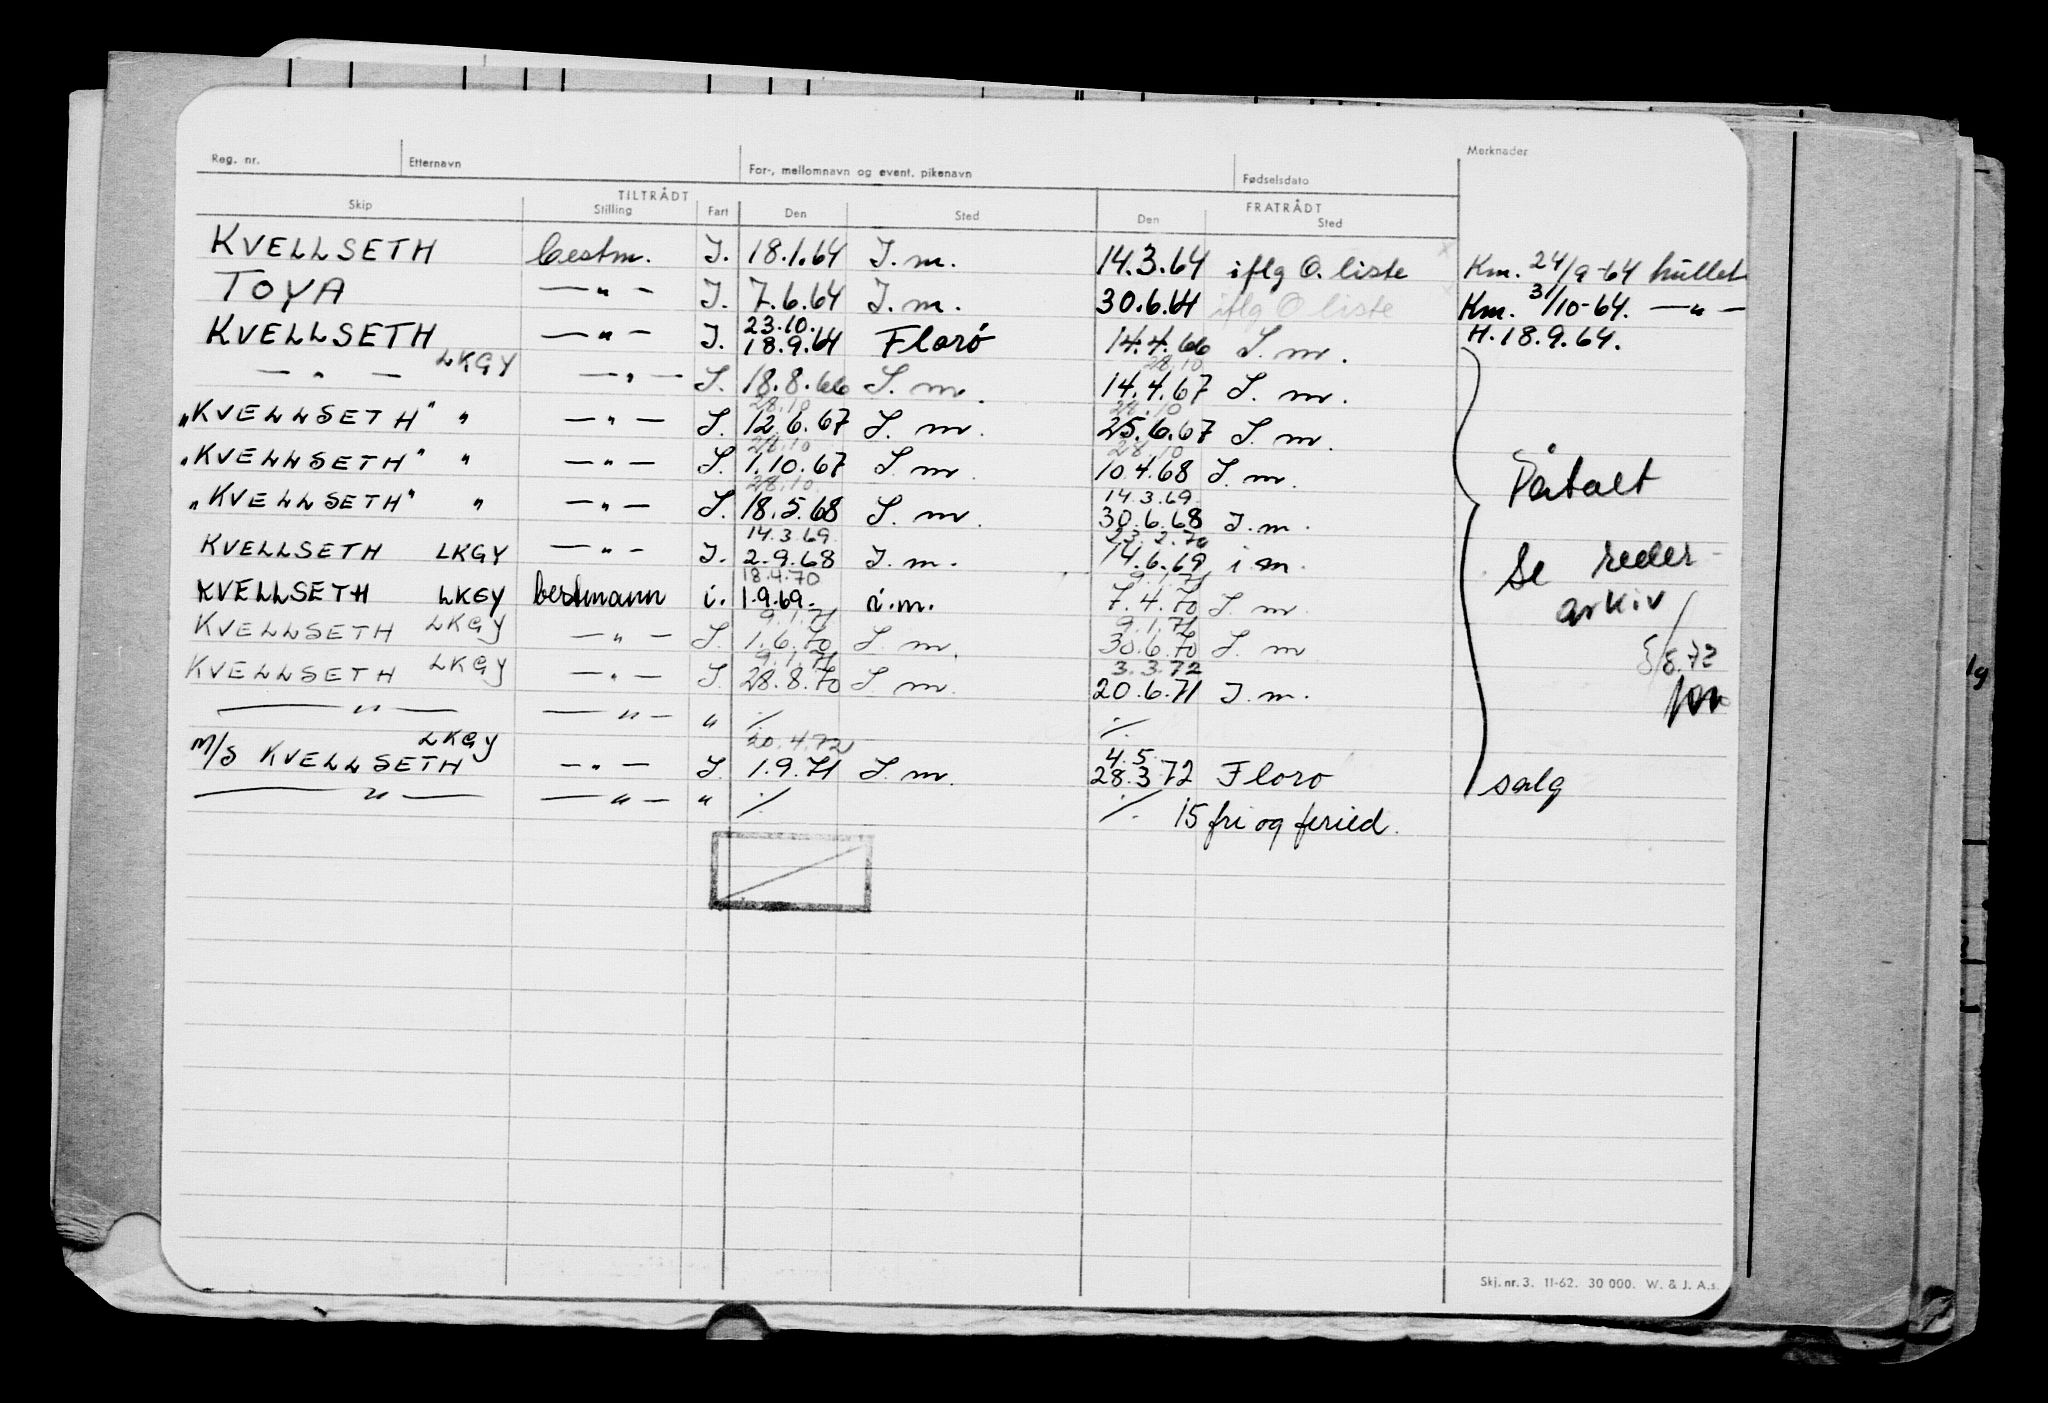 Reg. nr. Etternavn For-, mellomnavn og event. pikenavn Fødselsdato Merknader
TILTRÅDT FRATRÅDT
Skip Stilling Fart Den Sted Den Sted
KVELLSETH bestm. I. 18.1.64 I.m. 14.3.64 iflg O. liste Km. 24/9-64 hullet
TOYA —„— I. 7.6.64 I.m. 30.6.64 iflg O liste Km. 31/10-64. —„—
23.10.
KVELLSETH —„— I. 18.9.64 Florø 14.4.66 I.m. H.18.9.64.
28.10
—„— LKGY —„— I. 18.8.66 I.m. 14.4.67 I.m.
28.10 28.10
„KVELLSETH" „ —„— I. 12.6.67 I.m. 25.6.67 I.m.
28.10 28.10
„KVELLSETH" „ —„— I. 1.10.67 I.m. 10.4.68 I.m. Påtalt
28.10. 14.3.69.
„KVELLSETH" „ —„— I. 18.5.68 I.m. 30.6.68 I.m.
14.3.69. 23.2.70
KVELLSETH LKGY —„— I. 2.9.68 I.m. 14.6.69 i.m. Se reder-
18.4.70 9.1.71
KVELLSETH LKGY bestmann i. 1.9.69. i.m. 7.4.70 I.m. arkiv
9.1.71 9.1.71
KVELLSETH LKGY —„— I. 1.6.70 I.m. 30.6.70 I.m
9.1.71 3.3.72
KVELLSETH LKGY —„— I. 28.8.70 I.m. 20.6.71 I.m. 8.72
—„— —„— „ ./. ./.
20.4.72 4.5.
M/S KVELLSETH LKGY —„— I. 1.9.71 I.m. 28.3.72 Floro salg
—„— —„— „ ./. ./. 15 fri og feried.
Skj. nr. 3. 11-62. 30 000. W. & J. A.s.